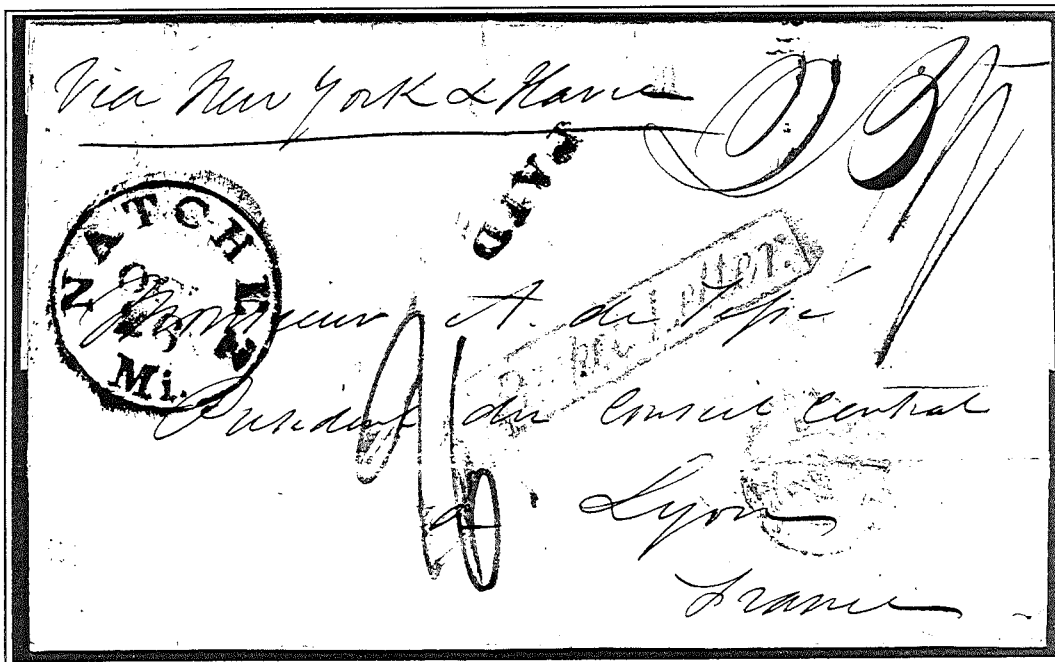 Via New York & Havre
PAID
NATCHEZ
Mi.
Monsieur A. de Jessé
President du Conseil Central
à Lyon
France